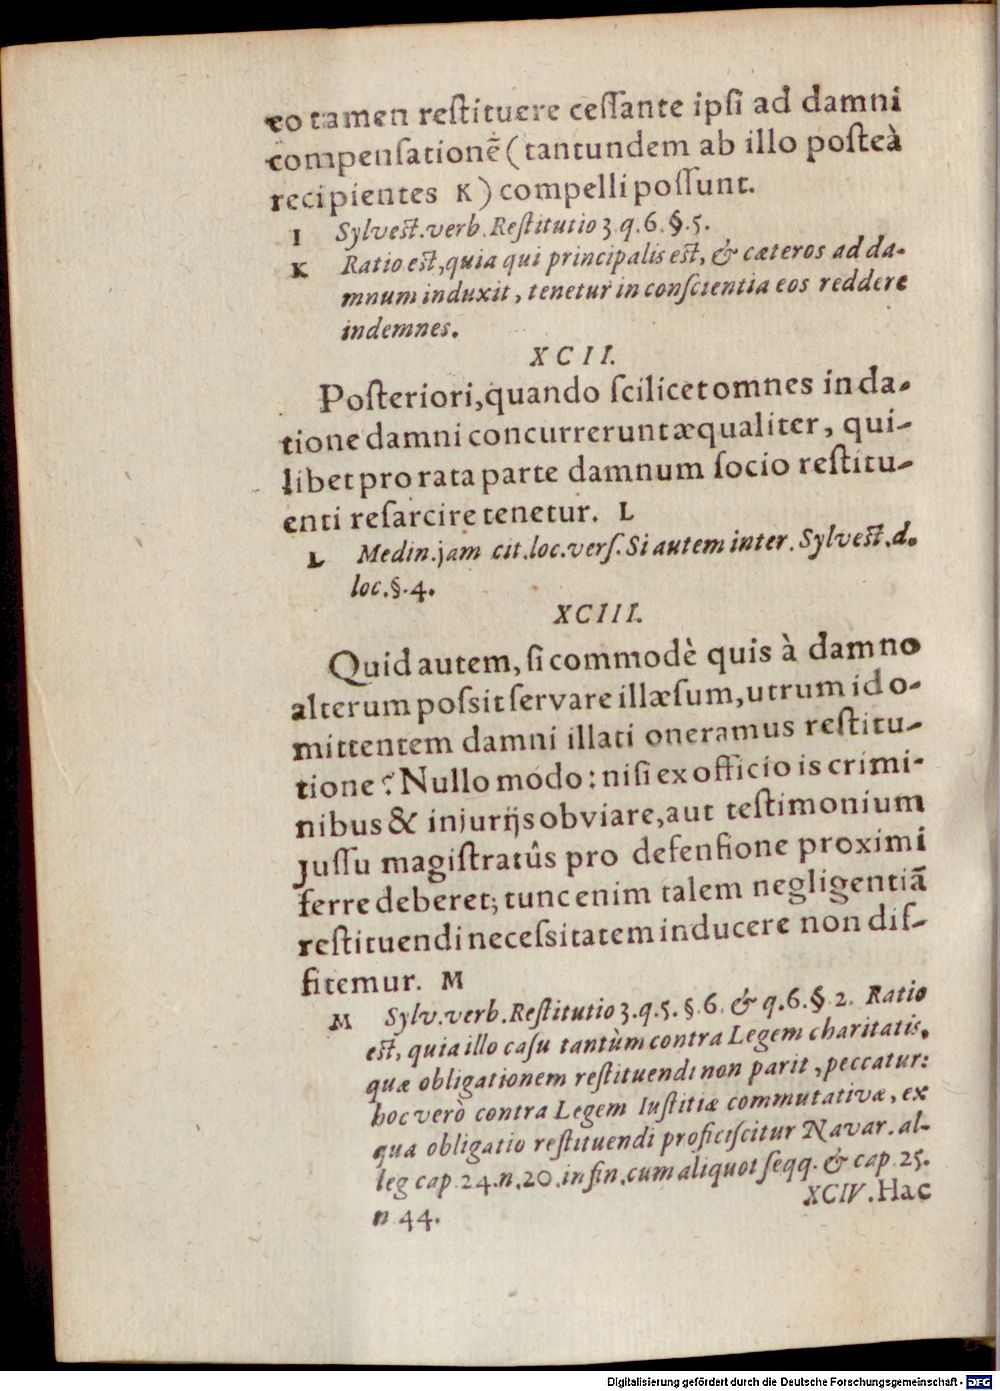 eo tamen reſtituere ceſſante ipſi ad damni
compenſationẽ (tantundem ab illo poſteà
recipientes K) compelli poſſunt.
I Sylveſt. verb. Reſtitutio 3. q. 6. §. 5.
K Ratio eſt, quia qui principalis eſt, & cæteros ad da-
mnum induxit, tenetur in conſcientia eos reddere
indemnes.
XCII.
Poſteriori, quando ſcilicet omnes in da-
tione damni concurrerunt æqualiter, qui-
libet pro rata parte damnum ſocio reſtitu-
enti reſarcire tenetur. L
L Medin. jam cit. loc. verſ. Si autem inter. Sylveſt. d.
loc. §. 4.
XCIII.
Quid autem, ſi commodè quis à damno
alterum poſsit ſervare illæſum, utrum id o-
mittentem damni illati oneramus reſtitu-
tione? Nullo modo: niſi ex officio is crimi-
nibus & injurijs obviare, aut teſtimonium
juſſu magiſtratûs pro defenſione proximi
ferre deberet; tunc enim talem negligentiã
reſtituendi neceſsitatem inducere non dif-
fitemur. M
M Sylv. verb. Reſtitutio 3. q. 5. §. 6. & q. 6. §. 2. Ratio
eſt, quia illo caſu tantùm contra Legem charitatis,
quæ obligationem reſtituendi non parit, peccatur:
hoc verò contra Legem Iuſtitiæ commutativæ, ex
qua obligatio reſtituendi proficiſcitur Navar. al-
leg cap. 24. n. 20. in fin. cum aliquot ſeqq. & cap. 25.
n 44.
XCIV. Hac
Digitalisierung gefördert durch die Deutsche Forschungsgemeinschaft - DFG